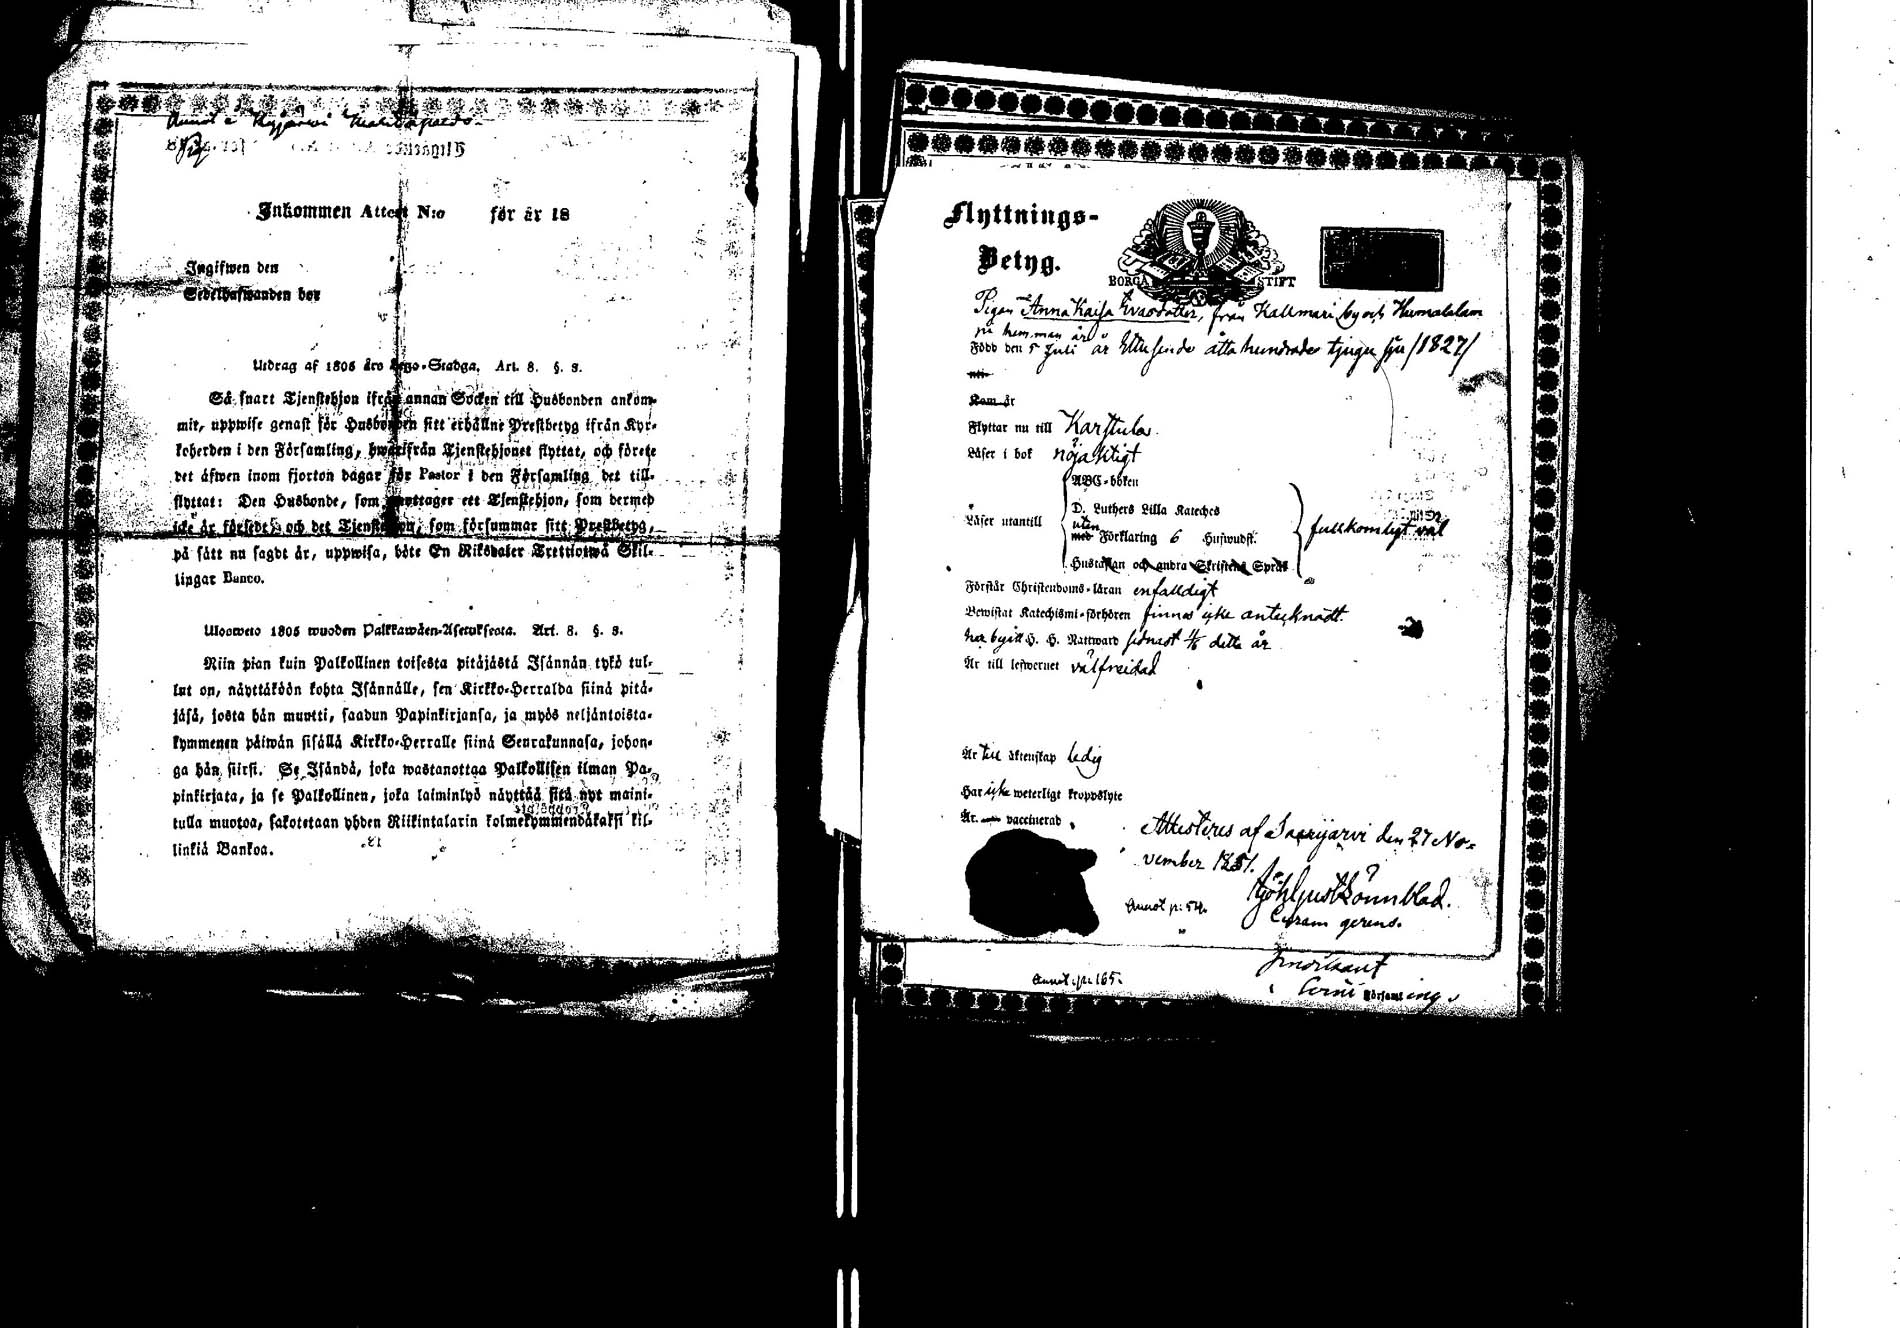 Annot a Kyjärvi
Inkommen Attest N:o för år 18
Ingifwen den
Sedelhafwanden bor
Utdrag af 1805 års Lego-Stadga. Art. 8. §. 8.
Så snart Tjenstehjon ifrån annan Socken till Husbonden ankom-
mit, uppwise genast för Husbonden sitt erhållne Prestbetyg ifrån Kyr-
koherden i den Församling, hwarifrån Tjenstehjonet flyttat, och förete
det äfwen inom fjorton dagar för Pastor i den Församling det till-
flyttat: Den Husbonde, som emottager ett Tjenstehjon, som dermed
icke är försedt, och det Tjenstehjon, som försummar sitt Prestbetyg,
på sätt nu sagdt är, uppwisa, böte En Riksdaler Trettiotwå Skil-
lingar Banco.
Ulosweto 1805 wuoden Palkkawäen-Asetuksesta. Art. 8. §. 8.
Niin pian kuin Palkollinen toisesta pitäjästä Isännän tykö tul-
lut on, näyttäköön kohta Isännälle, sen Kirkko-Herralda siinä pitä-
jäsä, josta hän muutti, saadun Papinkirjansa, ja myös neljäntoista-
kymmenen päiwän sisällä Kirkko-Herralle siinä Seurakunnasa, johon-
ga hän siirsi. Se Isändä, joka wastanottaa Palkollisen ilman Pa-
pinkirjata, ja se Palkollinen, joka laiminlyö näyttää sitä nyt maini-
tulla muotoa, sakotetaan yhden Riikintalarin kolmekymmendäkaksi kil-
linkiä Bankoa.
Flyttnings-
Betyg.
BORGÅ STIFT
Pigan Anna Kaisa Evasdotter, från Kallmari by och Humalalam
på hemman är
Född den 5 Juli år Ettusende åtta hundrade tjugu sju /1827/
Kom år
Flyttar nu till Karstula.
Läser i bok nöjaktigt
ABC-boken
D. Luthers Lilla Kateches
Läser utantill
utan
med Förklaring 6 Hufwudst. fullkomligt väl
Hustaflan och andra Skriftens Språk
Förstår Christendoms-läran enfaldigt
Bewistat Katechismi-förhören finnes icke antecknadt.
har begått H. H. Nattward sednast 4/5 detta år
Är till lefwernet välfreidad
Är till äktenskap ledig
Har icke weterligt kroppslyte
Är vaccinerad
Attesteras af Saarijärvi den 27 No-
vember 1851.
Gust Lönnblad.
Annot p: 54.
Curam gerens.
Annot. p: 165.
Församl ing